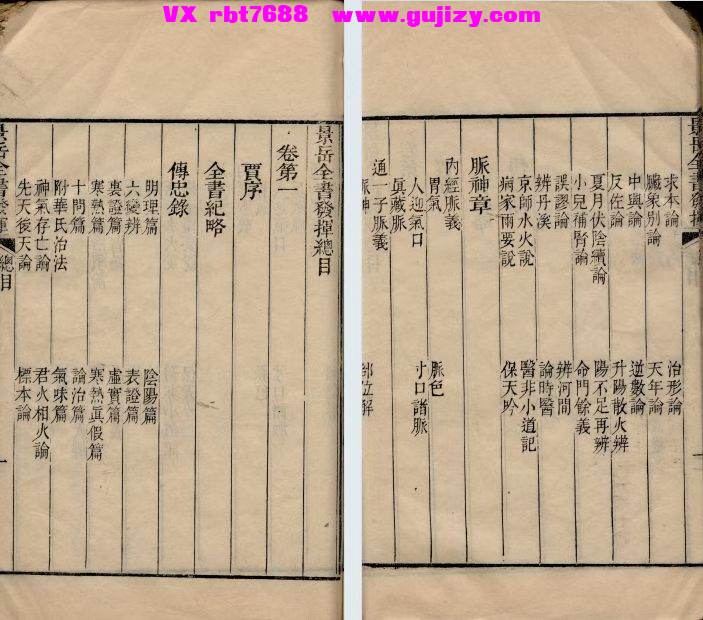 VX rbt7688 www.gujizy.com
景岳全書發揮總目
卷第一
賈序
全書紀略
傳忠錄
明理篇 陰陽篇
六變辨 表證篇
裏證篇 虛實篇
寒熱篇 寒熱眞假篇
十問篇 論治篇
附華氏治法 氣味篇
神氣存亡論 君火相火論
先天後天論 標本論
景岳全書發揮 總目 一
景岳全書發揮
求本論 治形論
臟象別論 天年論
中興論 逆數論
反佐論 升陽散火辨
夏月伏陰續論 陽不足再辨
小兒補腎論 命門餘義
誤謬論 辨河間
辨丹溪 論時醫
京師水火說 醫非小道記
病家兩要說 保天吟
脈神章
內經脈義
胃氣 脈色
人迎氣口 寸口諸脈
眞藏脈
通一子脈義
脈神 部位解